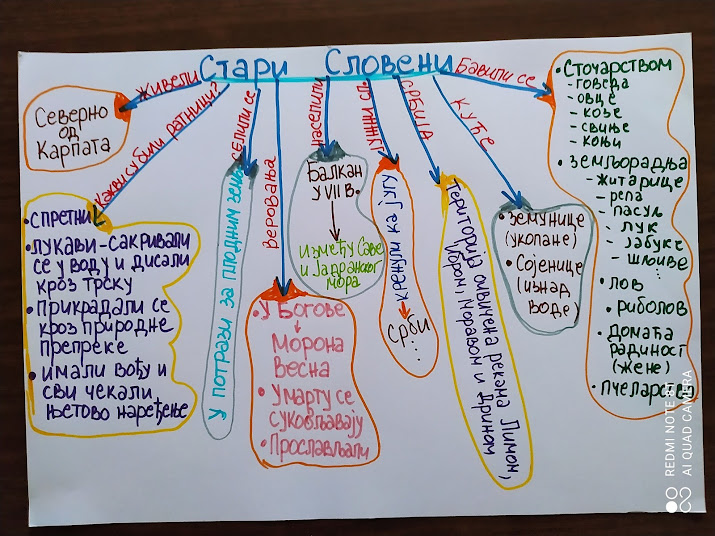 Стари Словени
Живели
Северно
од
Карпата
Какви су били ратници?
• СПРЕТНИ
• ЛУКАВИ - САКРИВАЛИ
СЕ У ВОДУ И ДИСАЛИ
КРОЗ ТРСКУ
• ПРИКРАДАЛИ СЕ
КРОЗ ПРИРОДНЕ
ПРЕПРЕКЕ
• ИМАЛИ ВОЂУ И
СВИ ЧЕКАЛИ
ЊЕГОВО НАРЕЂЕЊЕ
СЕЛИЛИ СЕ
У ПОТРАЗИ ЗА ПЛОДНИМ
ВЕРОВАЊА
• У БОГОВЕ
МОРОНА
ВЕСНА
• У МАРТУ СЕ
СУКОБЉАВАЈУ
• ПРОСЛАВЉАЛИ
НАСЕЛИЛИ
БАЛКАН
У VII В.
ИЗМЕЂУ САВЕ
И ЈАДРАНСКОГ
МОРА
ЈУЖНИ СЛ.
КРЕНУЛИ КА ЈУГУ
СРБИ
...
СРБИЈА
ТЕРИТОРИЈА ОИВИЧЕНА РЕКАМА ЛИМОМ,
ИБРОМ, МОРАВОМ И ДРИНОМ
КУЋЕ
• ЗЕМУНИЦЕ
(УКОПАНЕ)
• СОЈЕНИЦЕ
(ИЗНАД
ВОДЕ)
БАВИЛИ СЕ
• СТОЧАРСТВОМ
- ГОВЕДА
- ОВЦЕ
- КОЗЕ
- СВИЊЕ
- КОЊИ
• ЗЕМЉОРАДЊА
- ЖИТАРИЦЕ
- РЕПА
- ПАСУЉ
- ЛУК
- ЈАБУКЕ
- ШЉИВЕ
...
• ЛОВ
• РИБОЛОВ
• ДОМАЋА
РАДИНОСТ
(ЖЕНЕ)
• ПЧЕЛАРСТВО
REDMI NOTE 8T
AI QUAD CAMERA